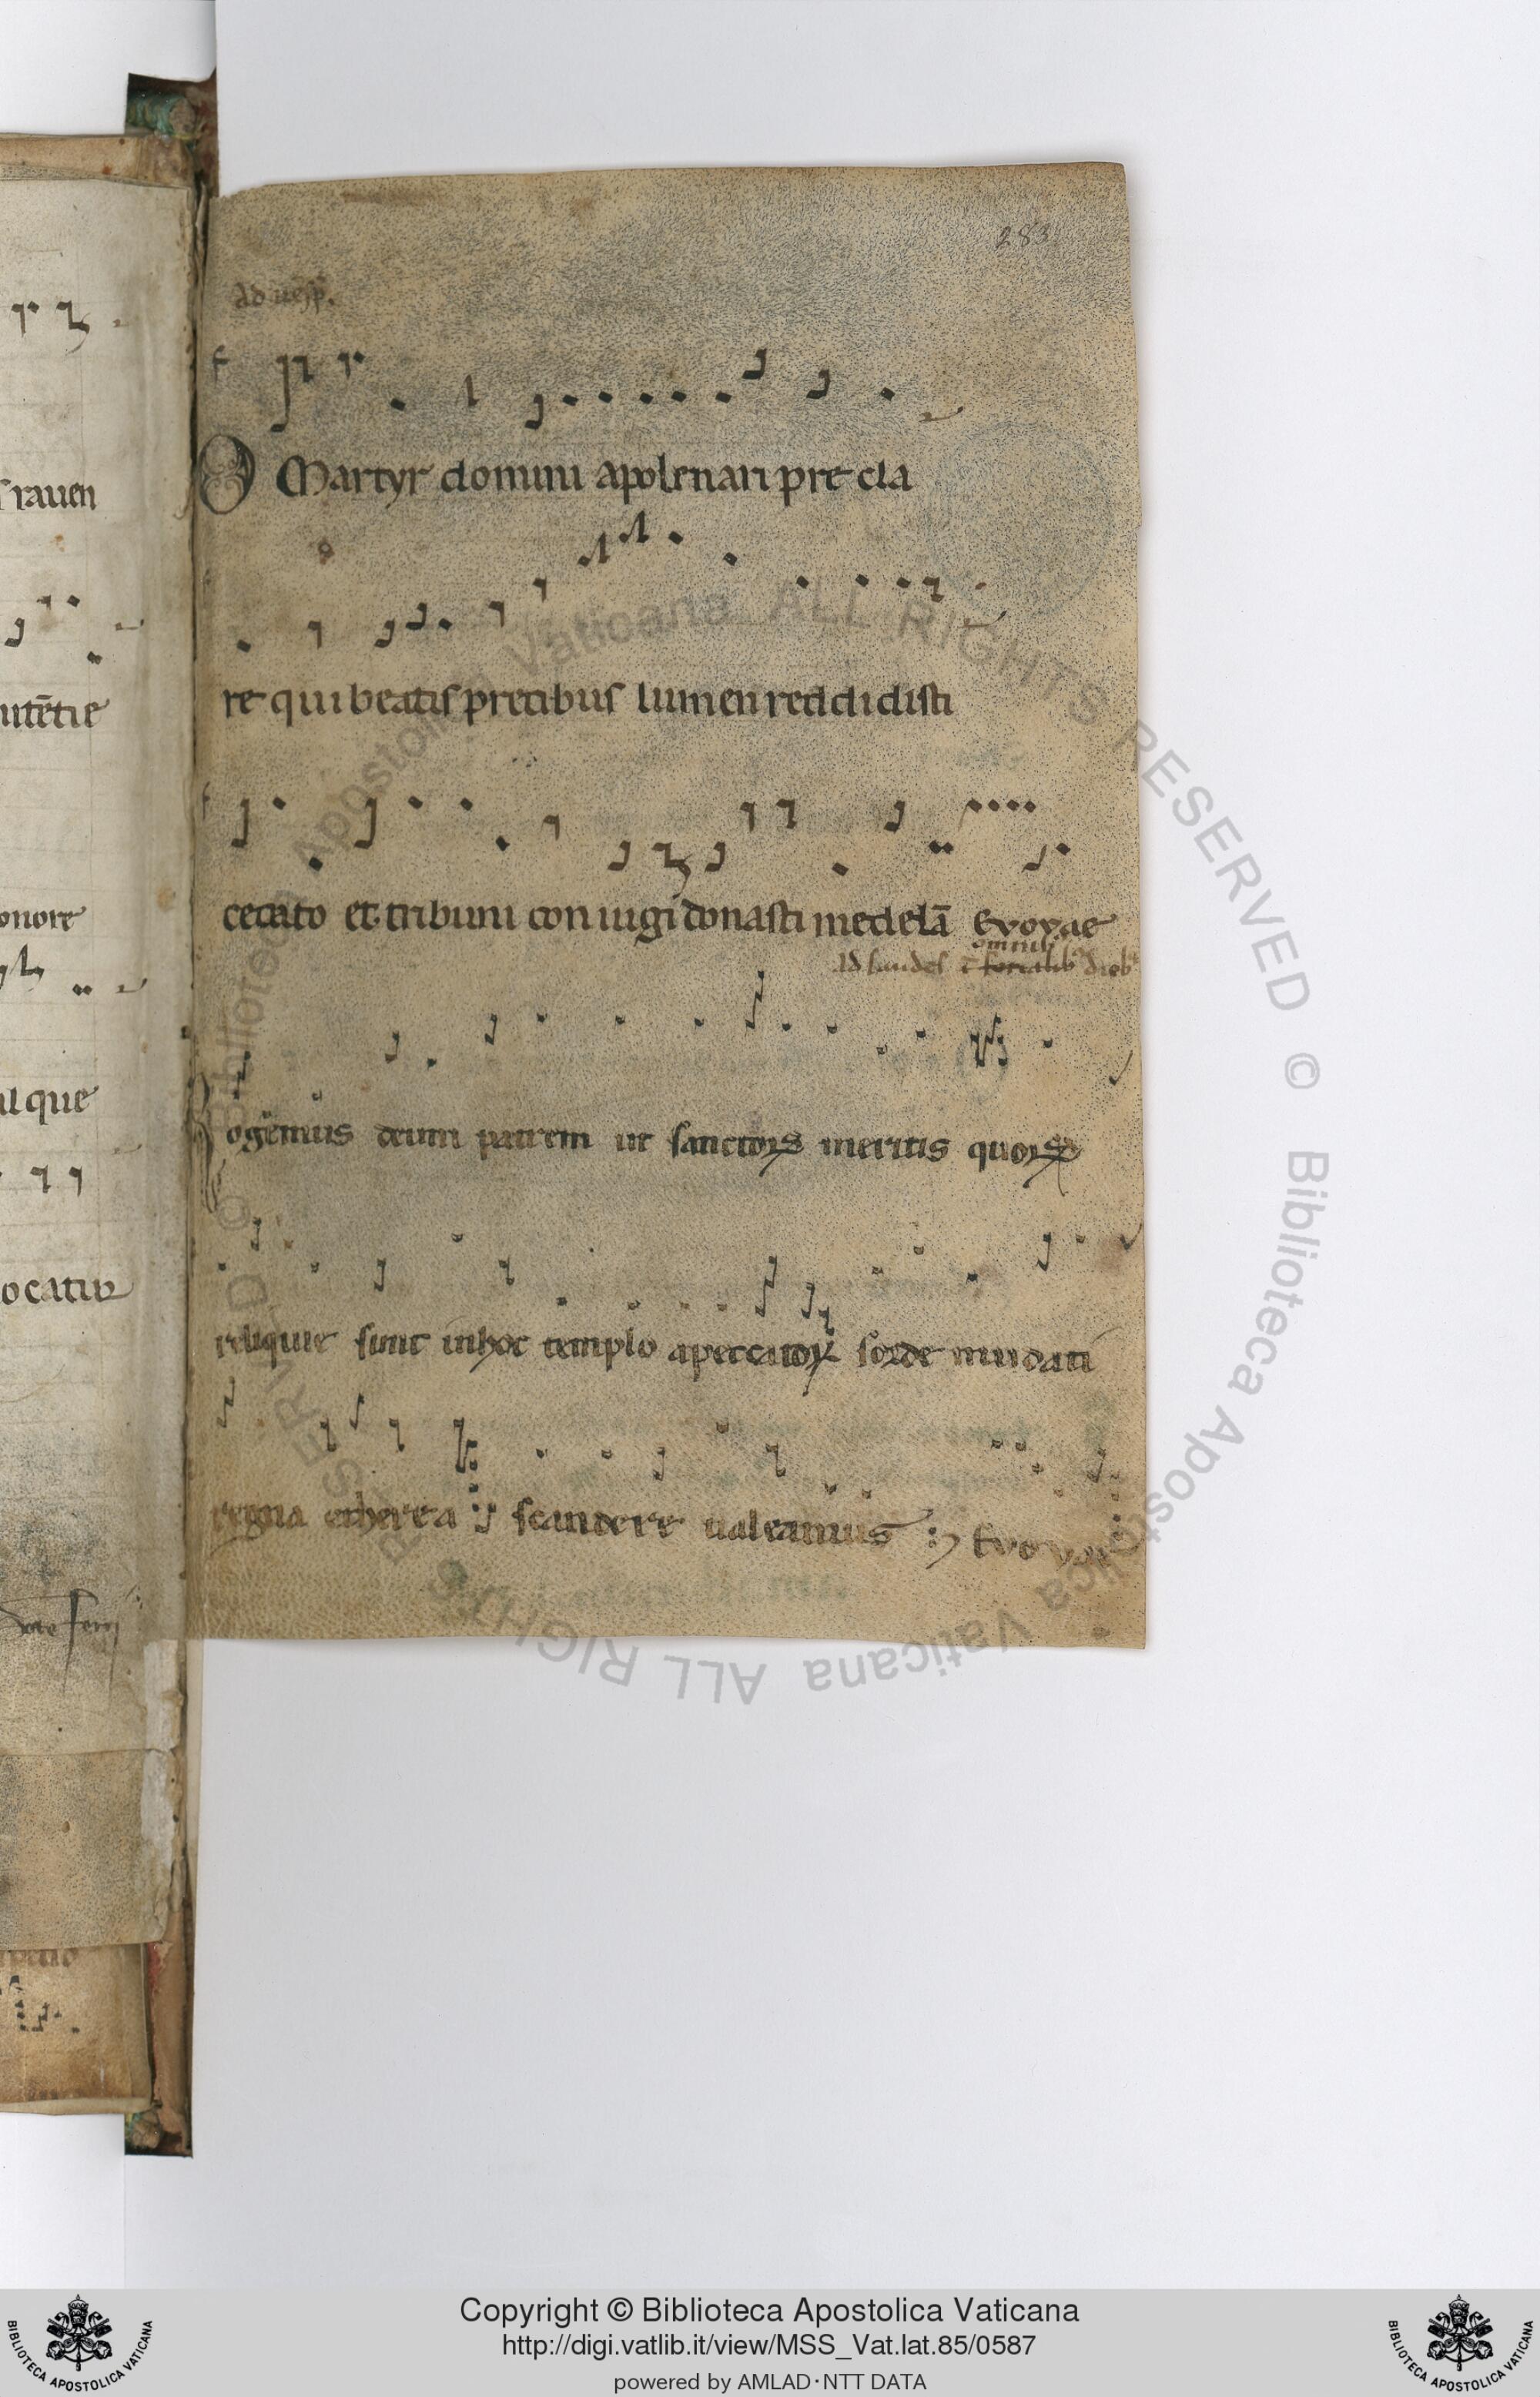 283
ad uesp̄.
O Martyr domini apolenari pre cla
re qui beatis precibus lumen reddidisti
cecato et tribuni con iugi donasti medelā Evovae
omnib;
Ad laudes
ogemus deum patrem ut sanctoꝝ meritis quoꝝ
reliquie sunt in hoc templo a peccatoꝝ sorde mundati
regna etherea scandere ualeamus Evovae
rauen
utētie
onore
que
ocatur
Copyright © Biblioteca Apostolica Vaticana
http://digi.vatlib.it/view/MSS_Vat.lat.85/0587
powered by AMLAD·NTT DATA
BIBLIOTECA APOSTOLICA VATICANA
BIBLIOTECA APOSTOLICA VATICANA
© Biblioteca Apostolica Vaticana ALL RIGHTS RESERVED © Biblioteca Apostolica Vaticana ALL RIGHTS RESERVED